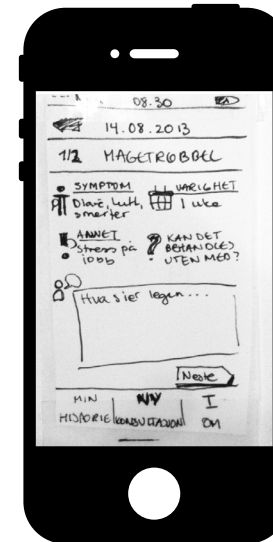 08.30
14.08.2013
1/2 MAGETRØBBEL
SYMPTOM
Diaré, kuli,
smerter
VARIGHET
1 uke
ANNET
Stress på
jobb
? KAN DET
BEHANDLES
UTEN MED?
Hva sier legen...
Neste
MIN
HISTORIE
NY
KONSULTASJON
I
OM